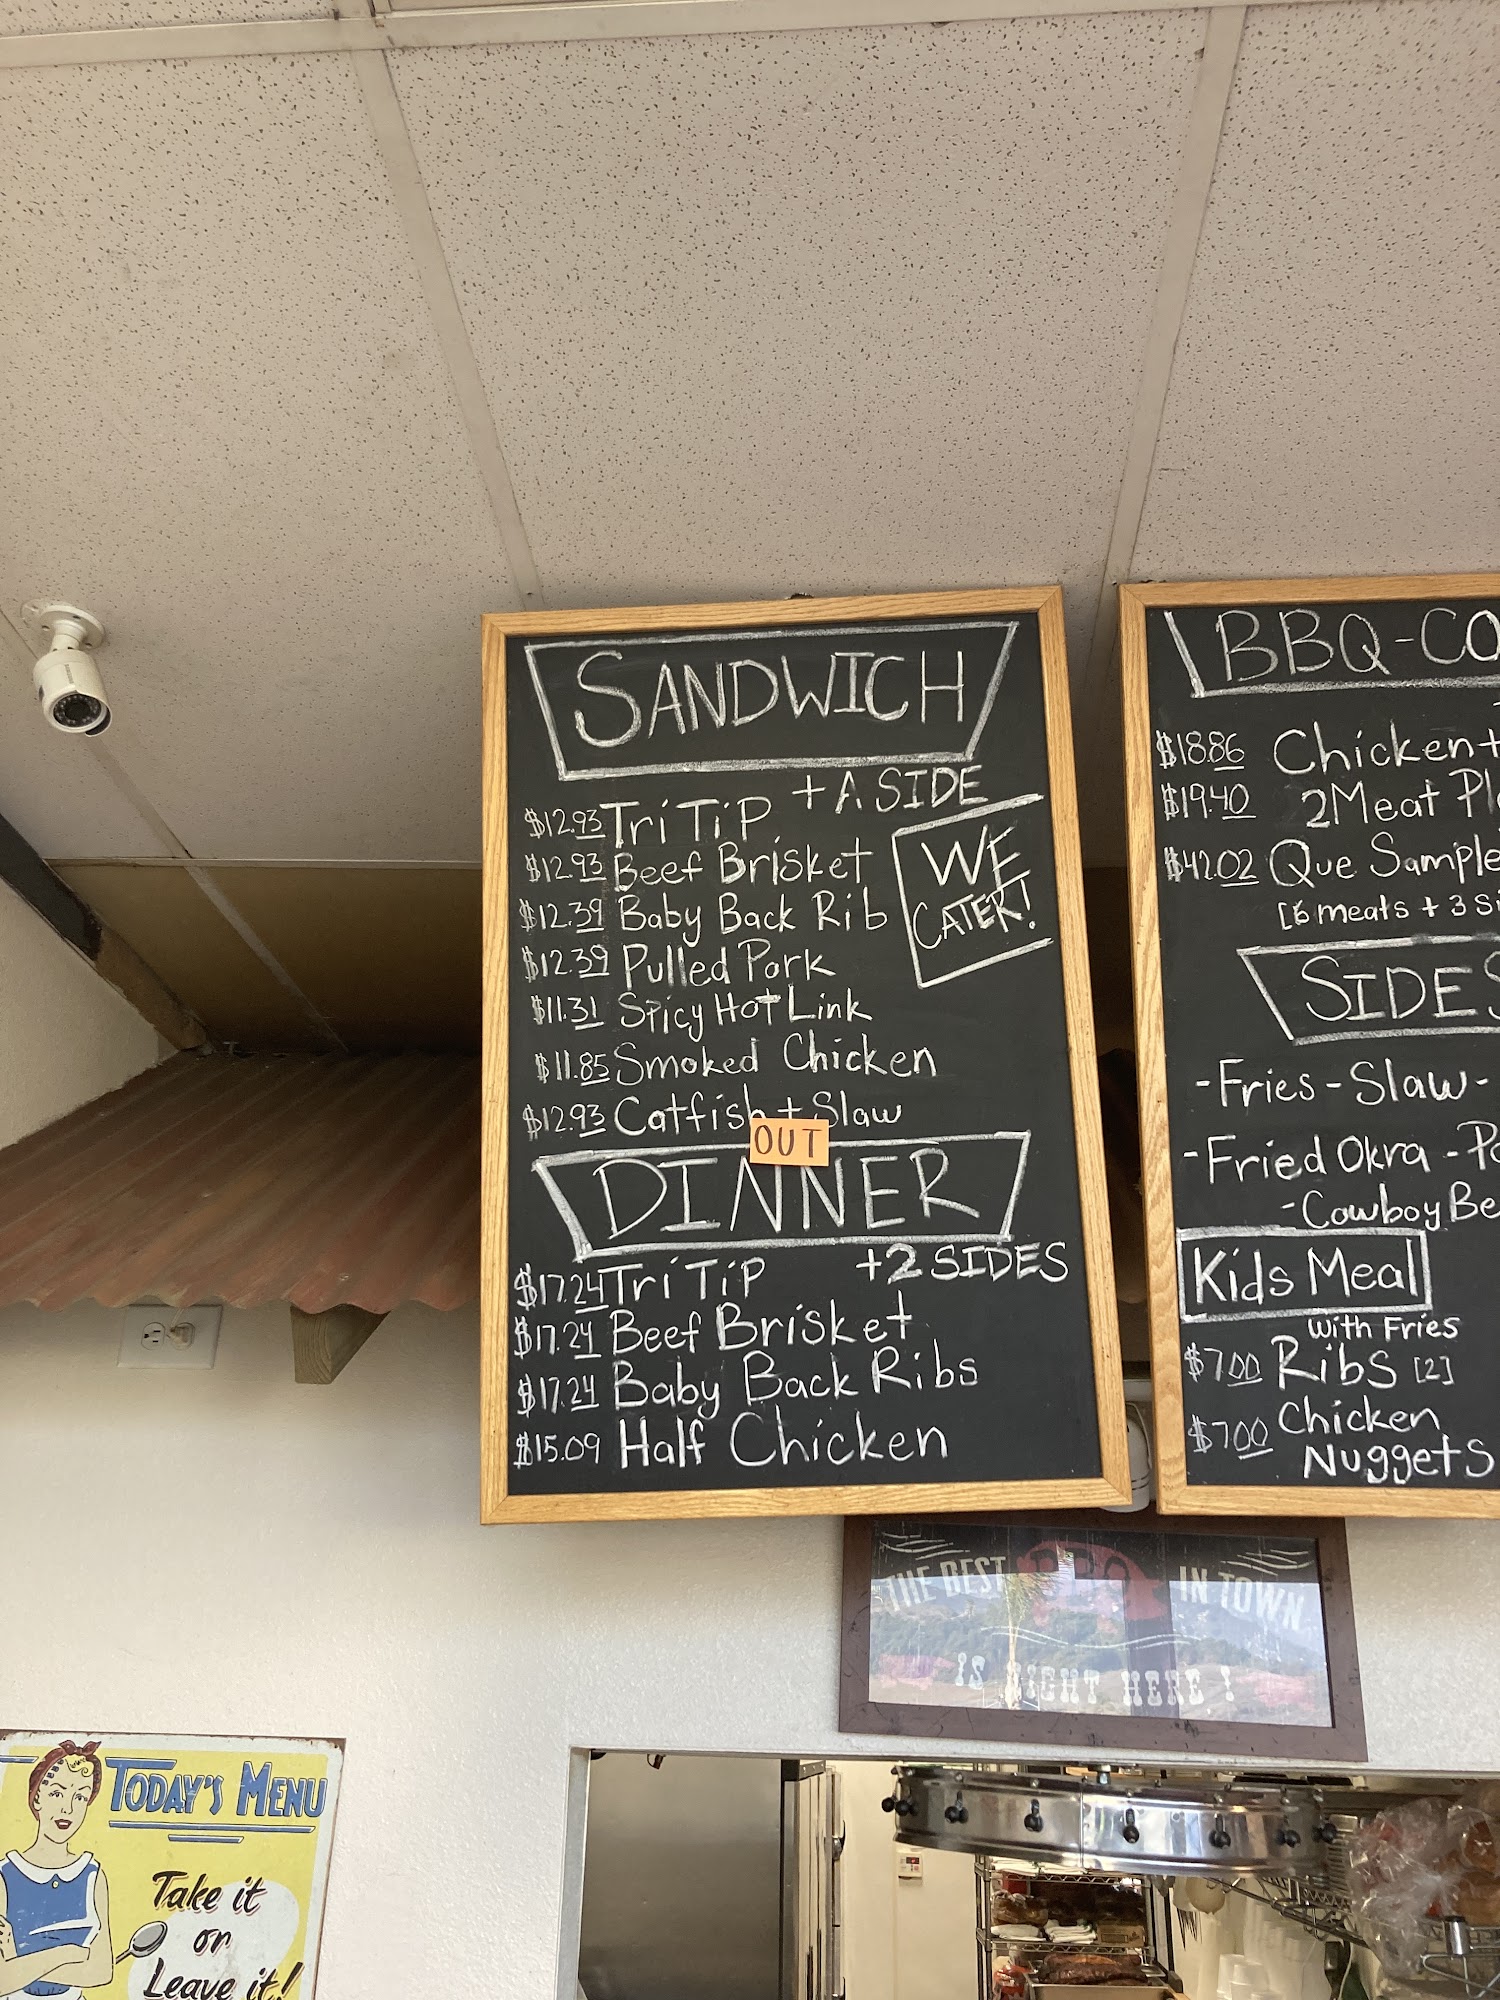 SANDWICH
+ A SIDE
$12.93 Tri Tip
$12.93 Beef Brisket
$12.39 Baby Back Rib
$12.39 Pulled Pork
$11.31 Spicy Hot Link
$11.85 Smoked Chicken
$12.93 Catfish + Slaw
WE
CATER!
OUT
DINNER
+2 SIDES
$17.24 Tri Tip
$17.24 Beef Brisket
$17.24 Baby Back Ribs
$15.09 Half Chicken
BBQ-CO
$18.86 Chicken +
$19.40 2 Meat Pl
$42.02 Que Sample
[6 meats + 3 Si
SIDES
-Fries - Slaw -
-Fried Okra - Po
-Cowboy Be
Kids Meal
with Fries
$7.00 Ribs [2]
$7.00 Chicken
Nuggets
THE BEST BBQ IN TOWN
IS RIGHT HERE!
TODAY'S MENU
Take it
or
Leave it!